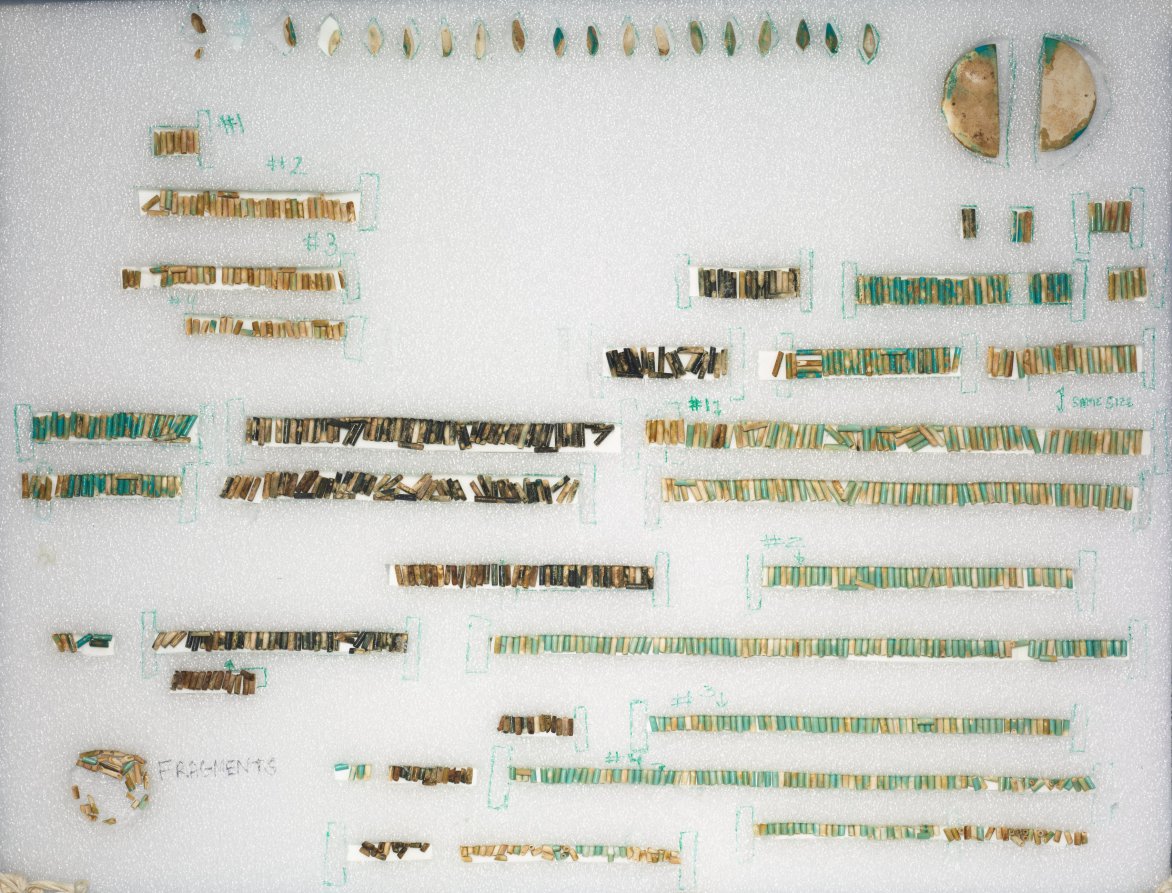 #1
#2
#3
#4
SAME SIZE
#1
#2
#3
#4
FRAGMENTS